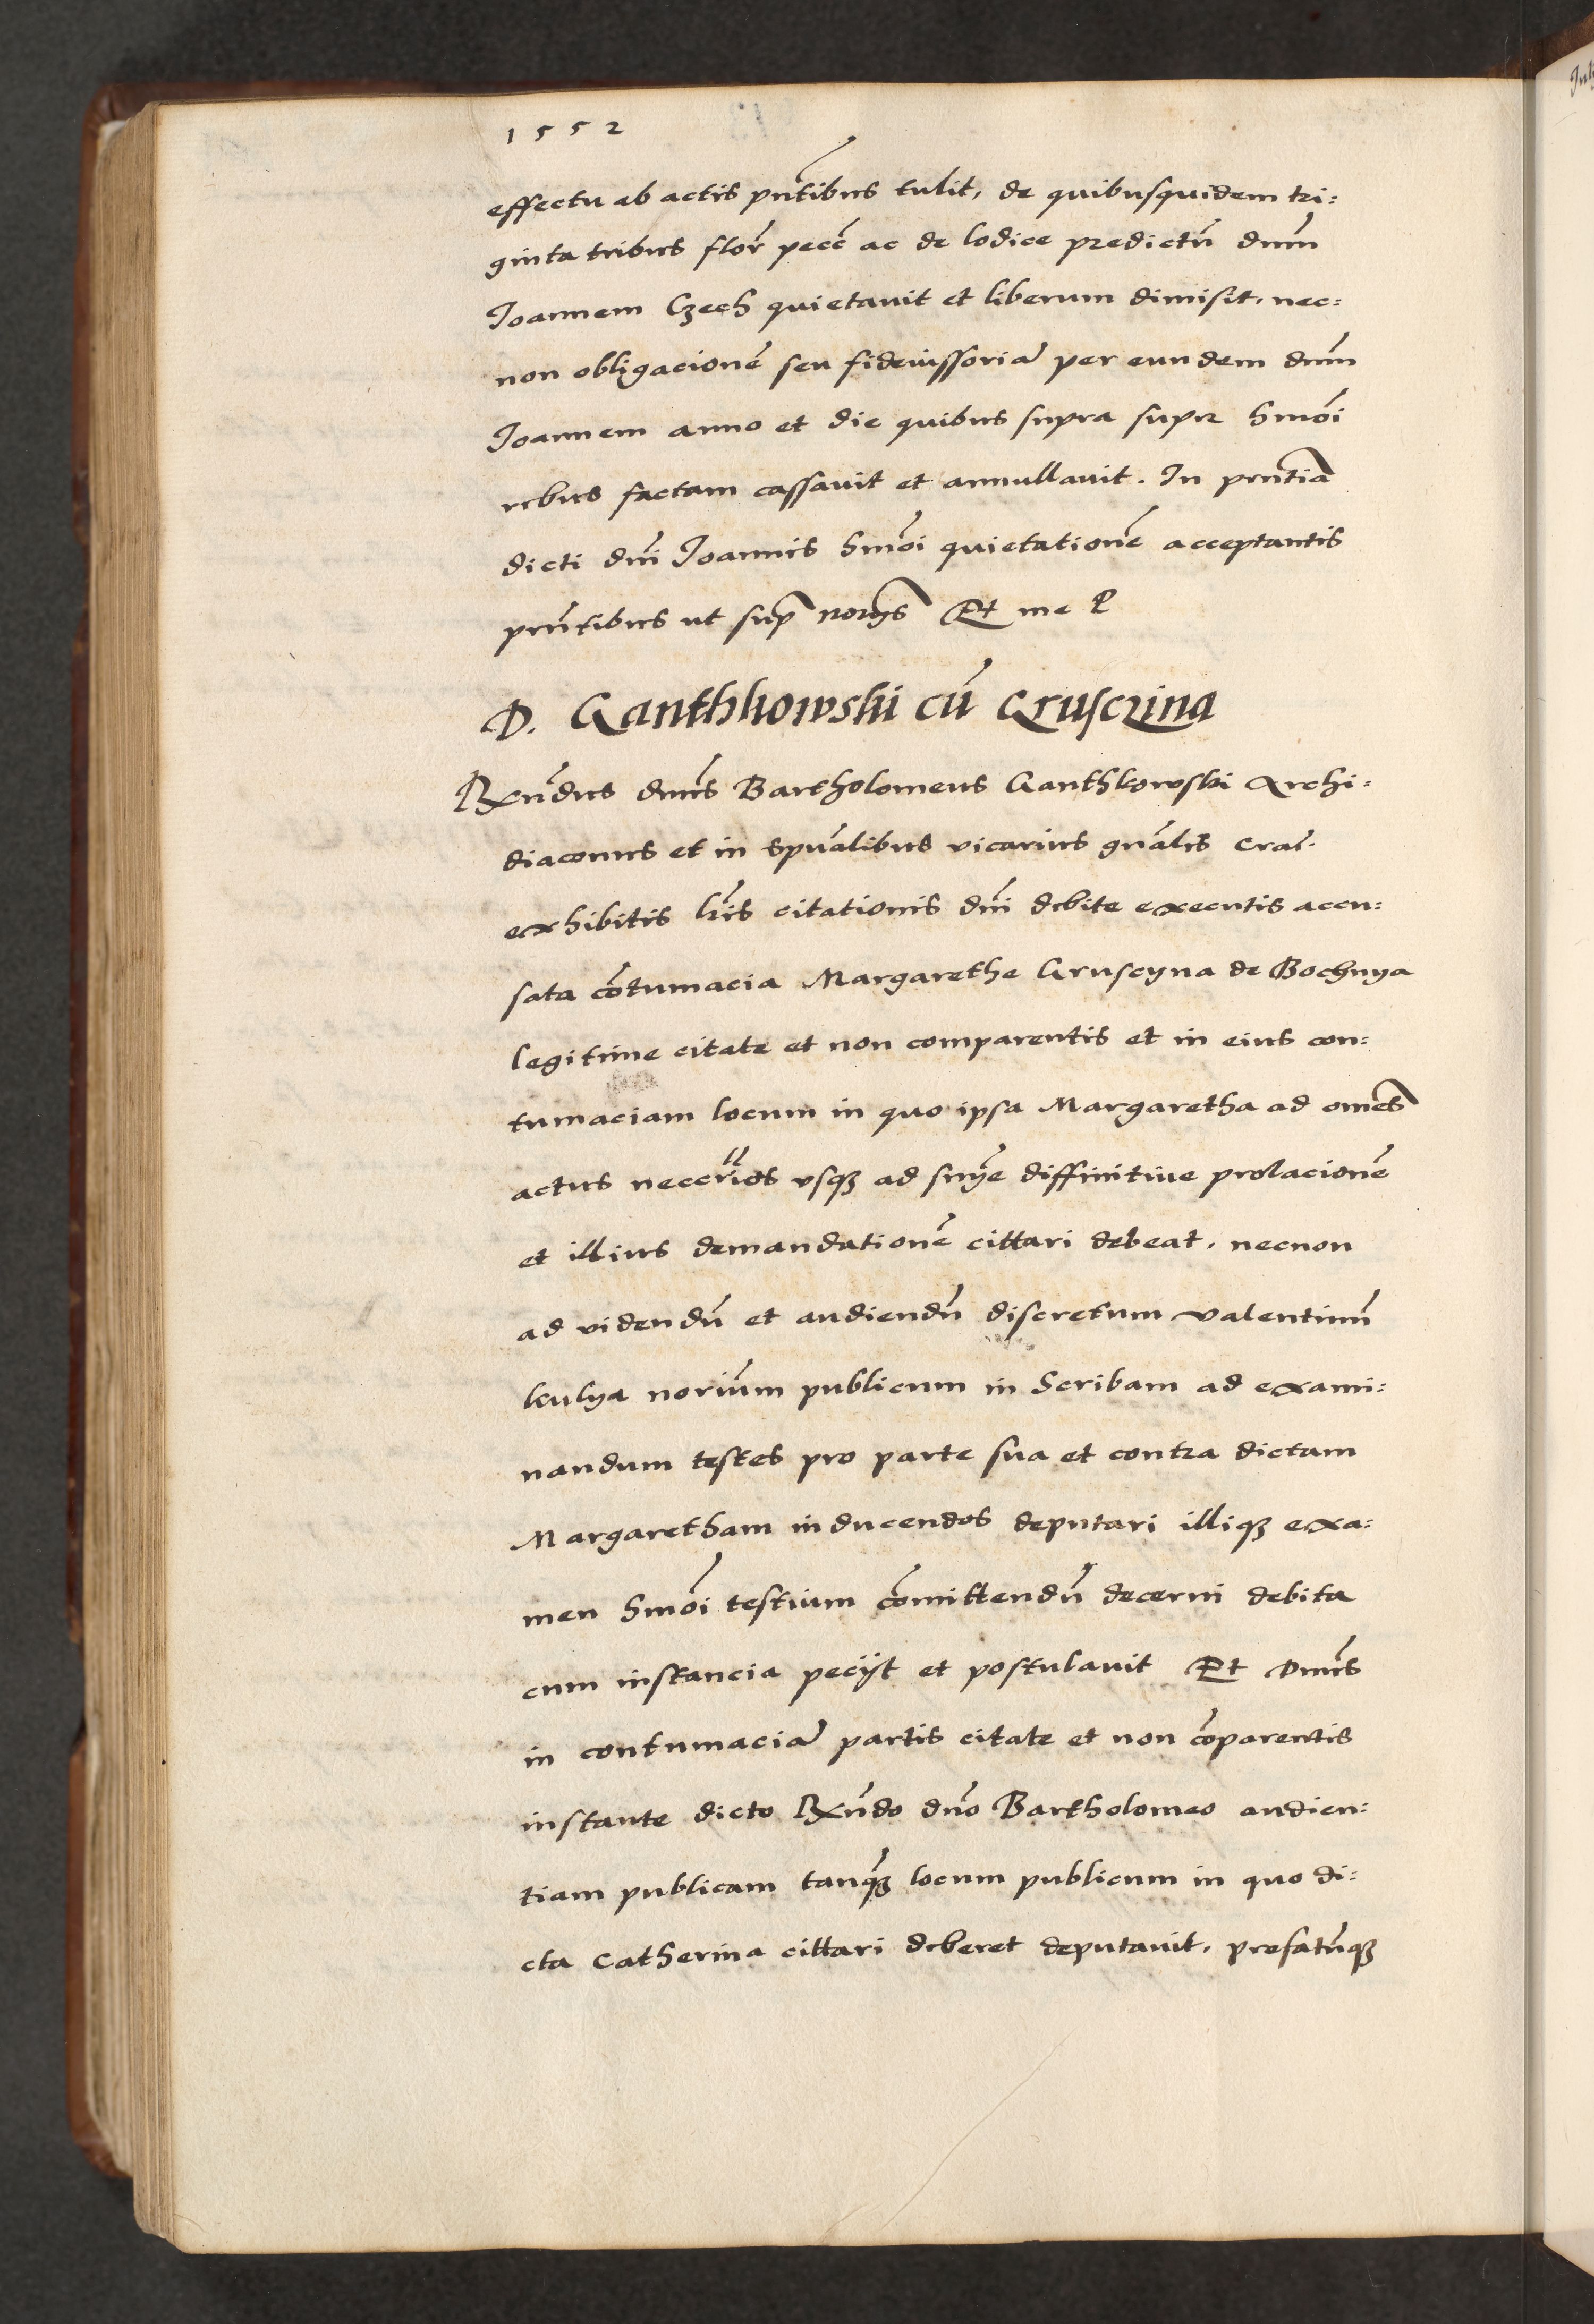 1552
effectu ab actis pntibus tulit, de quibusquidem tri:
ginta tribus flor pecc ac de lodice predictu dnm
Joannem Czech quietavit et liberum dimisit, nec:
non obligacione seu fideiussoria per eundem dnm
Joannem anno et die quibus supra supr Smoi
rebus factam cassavit et annullavit. In pntia
dicti dni Joannis Smoi quietatione acceptantis
pntibus ut sup norys Et me
D. Ganthkowski cu Grusczina
Rxndus dnus Bartholomeus Ganthkowski Archi:
diaconus et in spualibus vicarius gnalis Crac.
exhibitis lris citationis dni debite executis accu:
sata cotumacia Margarethe Gruscyna de Bochnya
legitime citate et non comparentis et in eius con:
tumaciam locum in quo ipsa Margaretha ad omes
actus neccrios vsq3 ad snye diffinitiue prolacione
et illius demandatione cittari debeat, necnon
ad videndu et audiendu discretum valentinu
kulya norium publicum in Scribam ad exami:
nandum testes pro parte sua et contra dictam
Margaretham inducendos deputari illiq3 exa:
men Smoi testium comittendu decerni debita
cum instancia pecijt et postulavit Et Dnus
in contumacia partis citate et non coparentis
instante dicto Rxndo dno Bartholomeo audien:
tiam publicam tanq3 locum publicum in quo di:
cta Catherina cittari deberet deputavit, prefatuq3